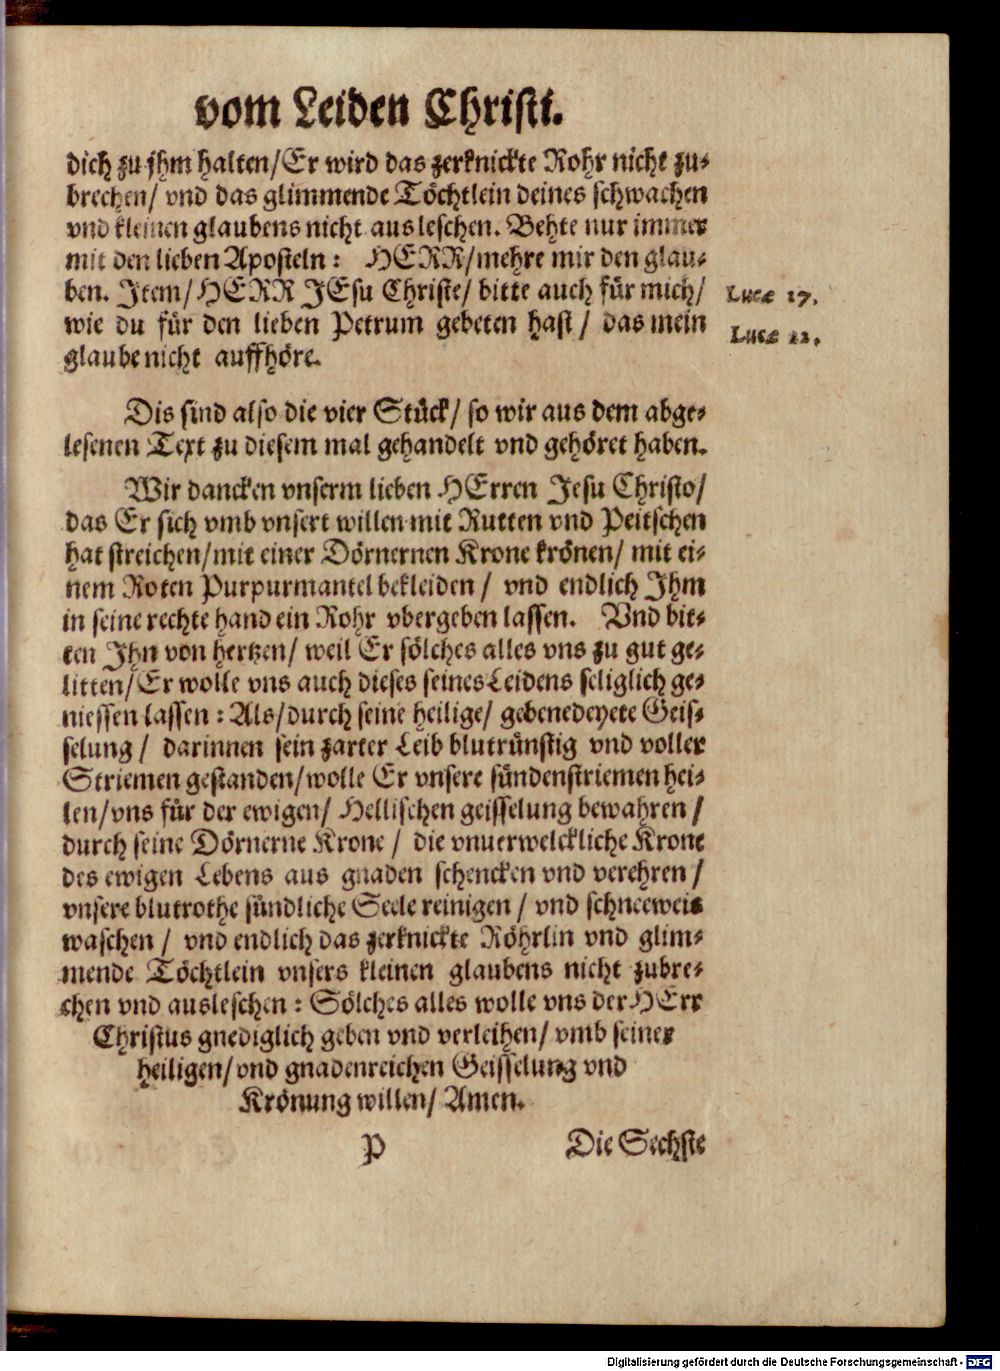 vom Leiden Christi.
dich zu jhm halten/Er wird das zerknickte Rohr nicht zu-
brechen/ vnd das glimmende Töchtlein deines schwachen
vnd kleinen glaubens nicht ausleschen. Behte nur immer
mit den lieben Aposteln: HERR/mehre mir den glau-
ben. Item/HERR JEsu Christe/ bitte auch für mich/
Lucæ 17.
wie du für den lieben Petrum gebeten hast/ das mein
Lucæ 22.
glaube nicht auffhöre.
Dis sind also die vier Stück/ so wir aus dem abge-
lesenen Text zu diesem mal gehandelt vnd gehöret haben.
Wir dancken vnserm lieben HErren Jesu Christo/
das Er sich vmb vnsert willen mit Rutten vnd Peitschen
hat streichen/mit einer Dörnernen Krone krönen/ mit ei-
nem Roten Purpurmantel bekleiden/ vnd endlich Ihm
in seine rechte hand ein Rohr vbergeben lassen. Vnd bit-
ten Ihn von hertzen/ weil Er sölches alles vns zu gut ge-
litten/Er wolle vns auch dieses seines Leidens seliglich ge-
niessen lassen: Als/durch seine heilige/ gebenedeyete Geis-
selung/ darinnen sein zarter Leib blutrünstig vnd voller
Striemen gestanden/wolle Er vnsere sündenstriemen hei-
len/vns für der ewigen/ Hellischen geisselung bewahren/
durch seine Dörnerne Krone/ die vnuerwelckliche Krone
des ewigen Lebens aus gnaden schencken vnd verehren/
vnsere blutrothe sündliche Seele reinigen/ vnd schneeweis
waschen/ vnd endlich das zerknickte Röhrlin vnd glim-
mende Töchtlein vnsers kleinen glaubens nicht zubre-
chen vnd ausleschen: Sölches alles wolle vns der HErr
Christus gnediglich geben vnd verleihen/ vmb seiner
heiligen/vnd gnadenreichen Geisselung vnd
Krönung willen/ Amen.
P Die Sechste
Digitalisierung gefördert durch die Deutsche Forschungsgemeinschaft - DFG